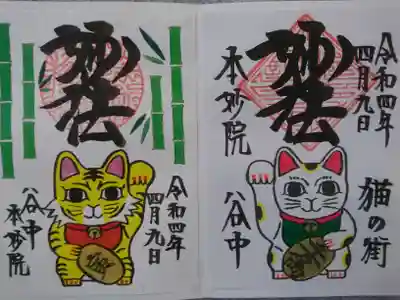 妙法
令和四年
四月九日
谷中
本妙院
令和四年
四月九日
妙法
本妙院
猫の街
谷中